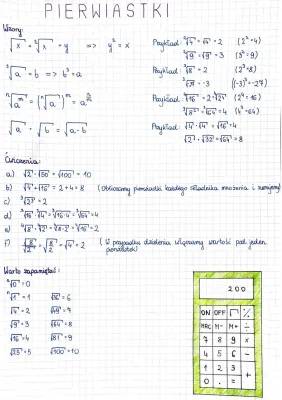 PIERWIASTKI
Wzory:
√x = ²√x = y => y² = x
³√a = b => b³ = a
ⁿ√aᵐ = (ⁿ√a)ᵐ = a^(m/n)
√a · √b = √a·b
Przykład: ²√4 = √4 = 2 (2² = 4)
²√9 = √9 = 3 (3² = 9)
Przykład: ³√8 = 2 (2³ = 8)
= -3 ((-3)³ = -27)
Przykład:
Przykład: √4 · √4 = √16 = 4
√2 · √32 = √64 = 8
Ćwiczenia:
a) √2 · √50 = √100 = 10
b) √4 + √16 = 2 + 4 = 8 (Obliczamy pierwiastki każdego składnika i sumujemy)
c) ³√2³ = 2
d) ³√16 · ³√4 = ³√16·4 = ³√64 = 4
e) ⁴√8 · ⁴√2 = ⁴√8·2 = ⁴√16 = 2
f) √8/√2 = √(8/2) = √4 = 2 (W przypadku dzielenia wartość pod jeden pierwiastek)
Warto zapamiętać:
ⁿ√0 = 0
ⁿ√1 = 1 √36 = 6
√4 = 2 √49 = 7
√9 = 3 √64 = 8
√16 = 4 √81 = 9
√25 = 5 √100 = 10
200
ON OFF √ %
MRC M- M+ ÷
7 8 9 x
4 5 6 -
1 2 3 +
0 . =